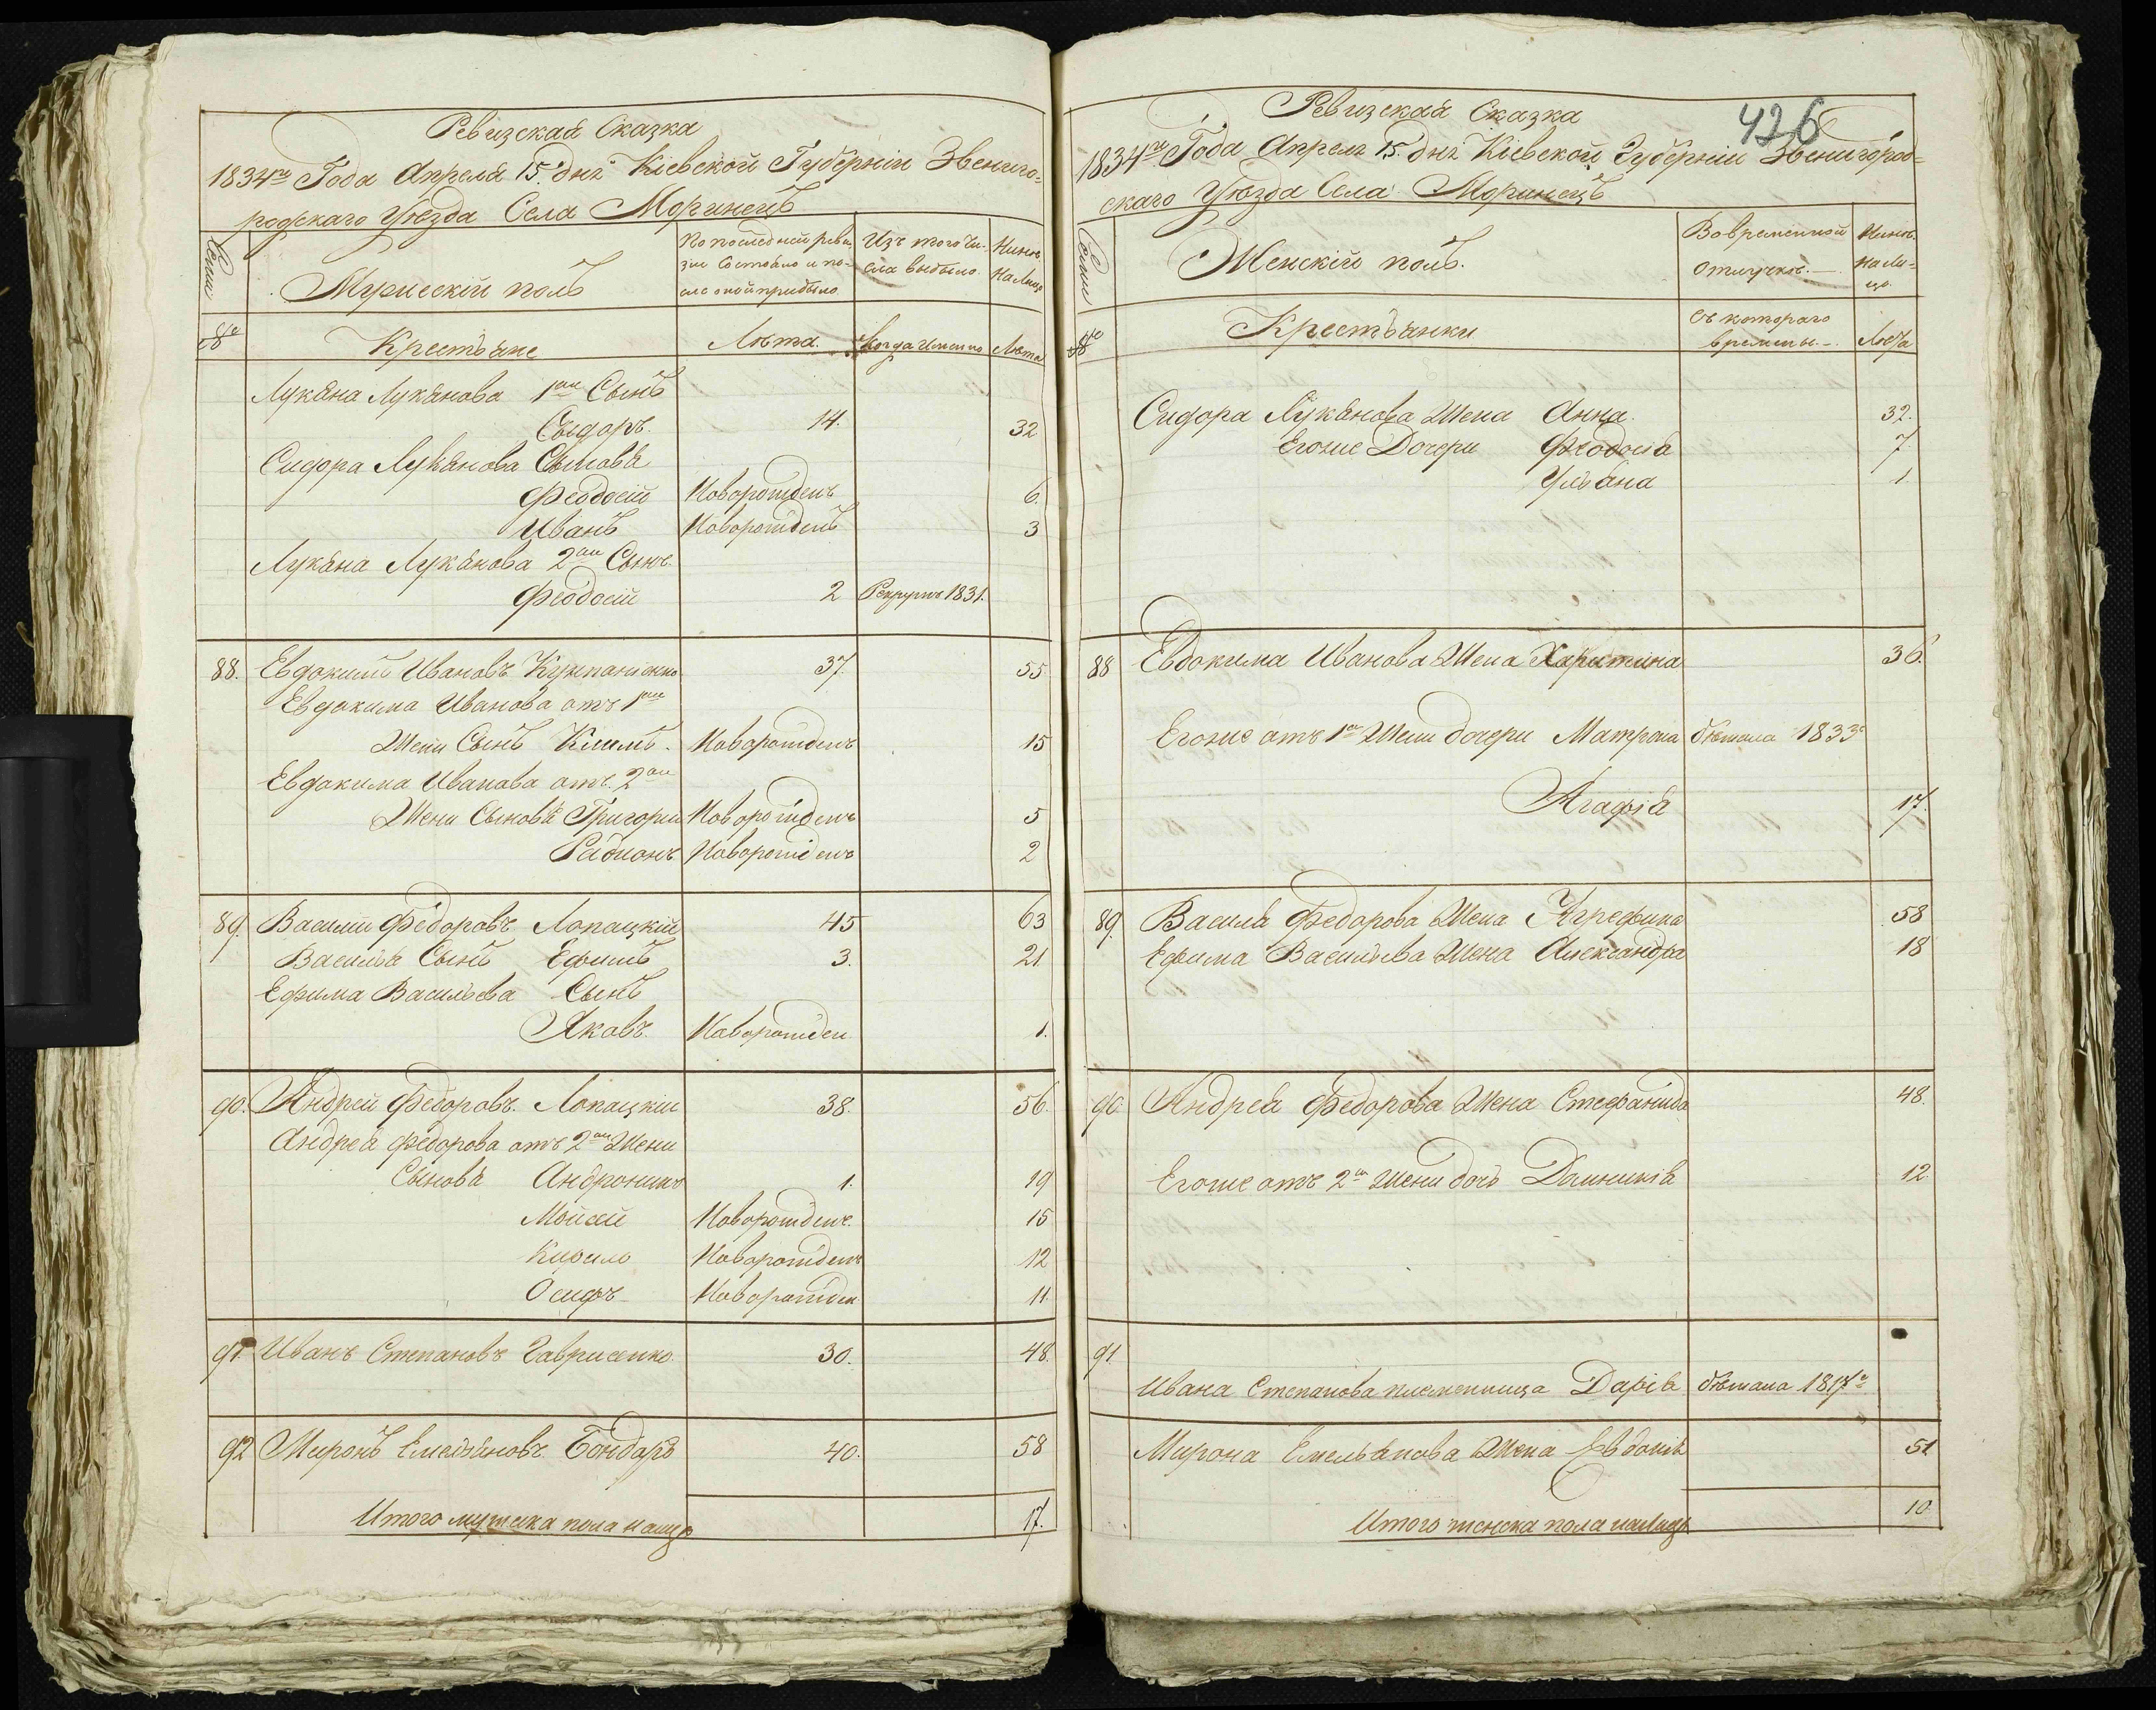 Ревизская Сказка
1834го Года Апреля 15. дня Кіевской Губерніи Звениго=
родскаго Уѣзда Села Моринецъ
Семьи
Мужескій полъ
По последней реви
зіи Состояло и по=
сле оной прибыло
Изъ того чи-
сла выбыло
Нынѣ
На Лицо
№
Крестьяне
Лѣта.
Когда Именно
Лѣта
Лукяна Лукянова 1ой Сынъ
Сыдоръ. 14. 32
Сидора Лукянова Сыновя
Феодосій Новорожденъ 6.
Иванъ Новорожденъ 3
Лукяна Лукянова 2ой Сынъ
Феодосій 2 Рекрутъ 1831.
88. Евдокимъ Ивановъ 37. 55
Евдокима Иванова отъ 1ой
Жени Сынъ Климъ. Новорожденъ 15
Евдокима Иванова отъ 2ой
Жени Сыновя Григорій Новорожденъ 5
Радионъ Новорожденъ 2
89. Василий Федоровъ Лопацкій 45 63
Василія Сынъ Ефимъ 3. 21
Ефима Васильева Сынъ
Яковъ. Новорожден 1.
90. Андрей Федоровъ Лопацкій 38. 56.
Андрея Федорова отъ 2ой Жени
Сыновя Андроникъ 1. 19
Мойсей Новорожденъ. 15
Кирило Новорожденъ 12
Осифъ Новорожден 11.
91. Иванъ Степановъ Гаврисенко. 30. 48.
92 Миронъ Емельяновъ Бондаръ 40. 58
Итого мужеска пола на лицо 17.
426
Ревизская Сказка
1834го Года Апреля 15. дня Кіевской Губерніи Звенигород=
скаго Уѣзда Села Моринецъ
Семьи
Женскій полъ.
Во временной
отлучкѣ.
Нынѣ
На Ли=
цо.
№
Крестьянки
Съ котораго
времены.
Лѣта
Сидора Лукянова Жена Анна. 32.
Егоже Дочери Феодосія 7.
Ульяна 1
88 Евдокима Иванова Жена Харитина 36.
Егоже отъ 1ой Жени дочери Матрона бѣжала 1833го
Агафія 17.
89. Василя Федорова Жена Агрефина 58
Ефима Васильева Жена Александра 18
90. Андрея Федорова Жена Стефанида 48.
Егоже отъ 2й Жени дочь Домникія 12.
91.
Ивана Степанова племенница Дарія бѣжала 1817го
Мирона Емельянова Жена Евдокія 51
Итого женска пола налицо 10.